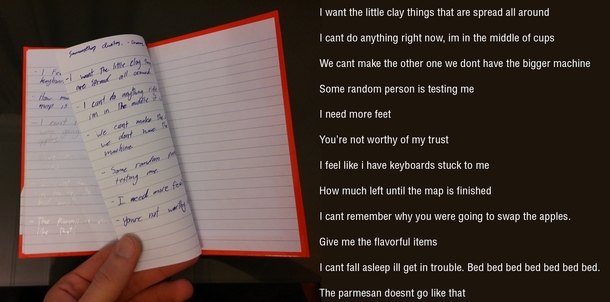 - I want the little clay
are spread all around
- I cant do anything
im in the middle
- We cant make the
we dont have
machine
- Some random
testing me
- I need more feet
- You're not worthy
I want the little clay things that are spread all around
I cant do anything right now, im in the middle of cups
We cant make the other one we dont have the bigger machine
Some random person is testing me
I need more feet
You're not worthy of my trust
I feel like i have keyboards stuck to me
How much left until the map is finished
I cant remember why you were going to swap the apples.
Give me the flavorful items
I cant fall asleep ill get in trouble. Bed bed bed bed bed bed bed.
The parmesan doesnt go like that